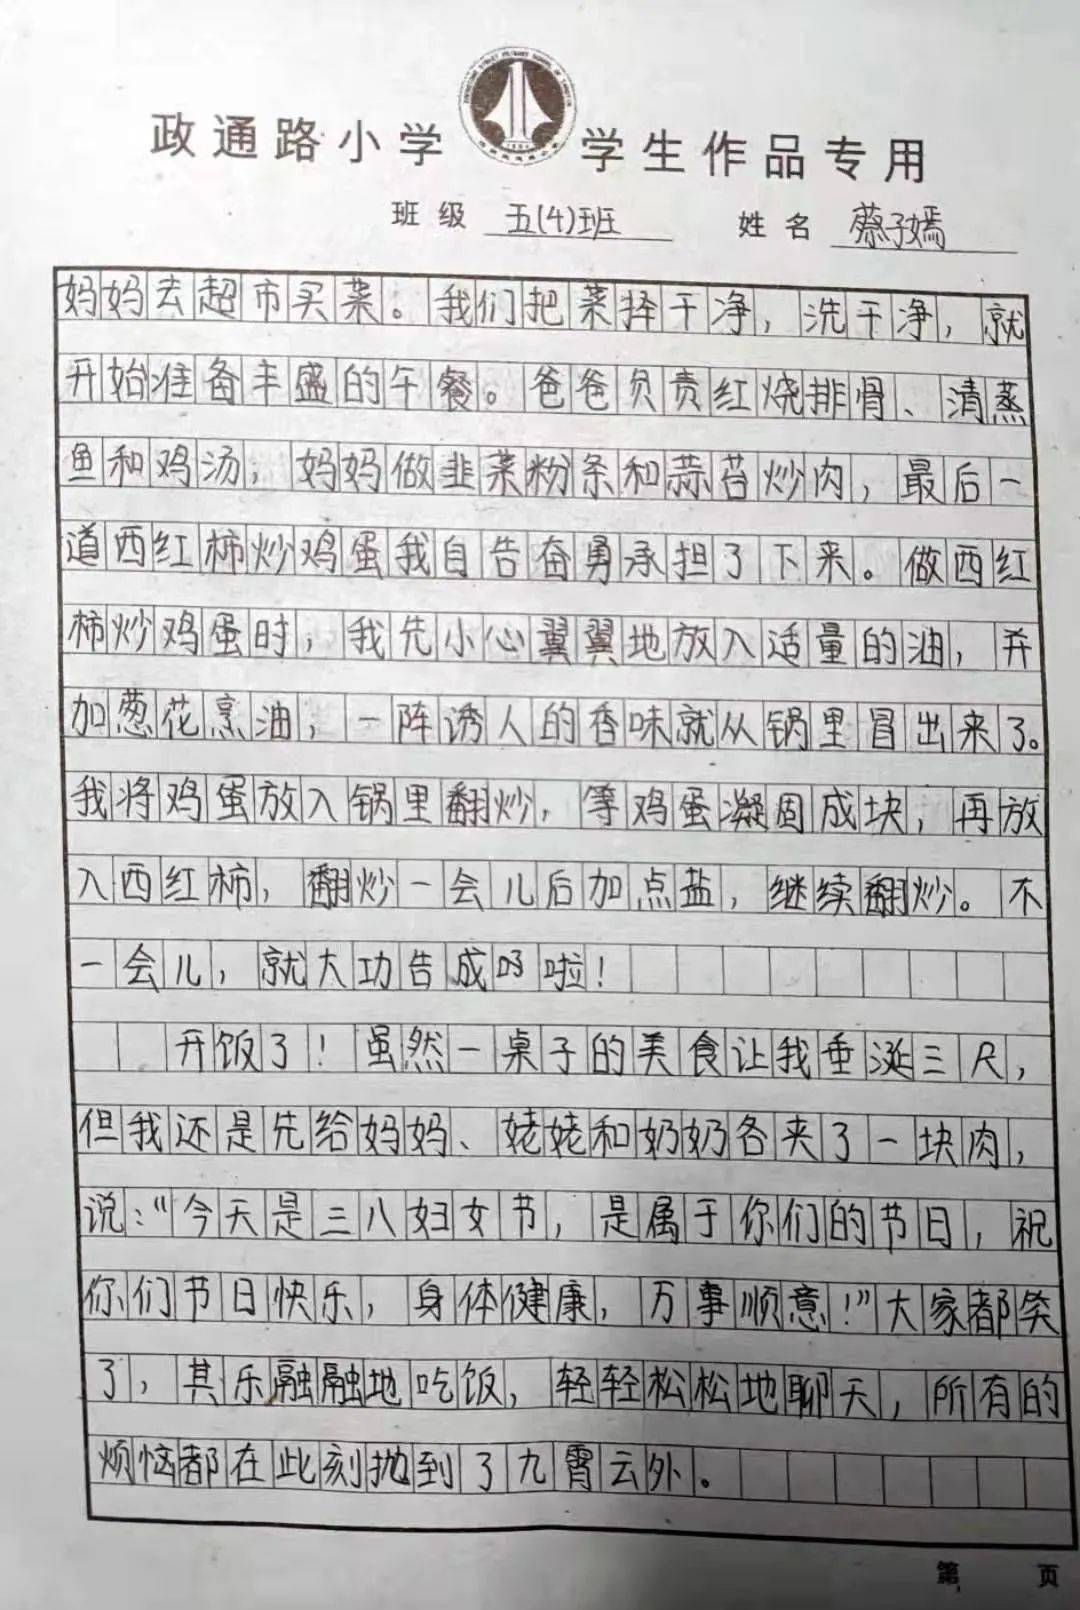 政通路小学 学生作品专用
班级 五(4)班 姓名 蔡子嫣
妈妈去超市买菜。我们把菜择干净，洗干净，就
开始准备丰盛的午餐。爸爸负责红烧排骨、清蒸
鱼和鸡汤，妈妈做韭菜粉条和蒜苔炒肉，最后一
道西红柿炒鸡蛋我自告奋勇承担了下来。做西红
柿炒鸡蛋时，我先小心翼翼地放入适量的油，并
加葱花烹油，一阵诱人的香味就从锅里冒出来了。
我将鸡蛋放入锅里翻炒，等鸡蛋凝固成块，再放
入西红柿，翻炒一会儿后加点盐，继续翻炒。不
一会儿，就大功告成啦！
开饭了！虽然一桌子的美食让我垂涎三尺，
但我还是先给妈妈、姥姥和奶奶各夹了一块肉，
说：“今天是三八妇女节，是属于你们的节日，祝
你们节日快乐，身体健康，万事顺意！”大家都笑
了，其乐融融地吃饭，轻轻松松地聊天，所有的
烦恼都在此刻抛到了九霄云外。
第 页